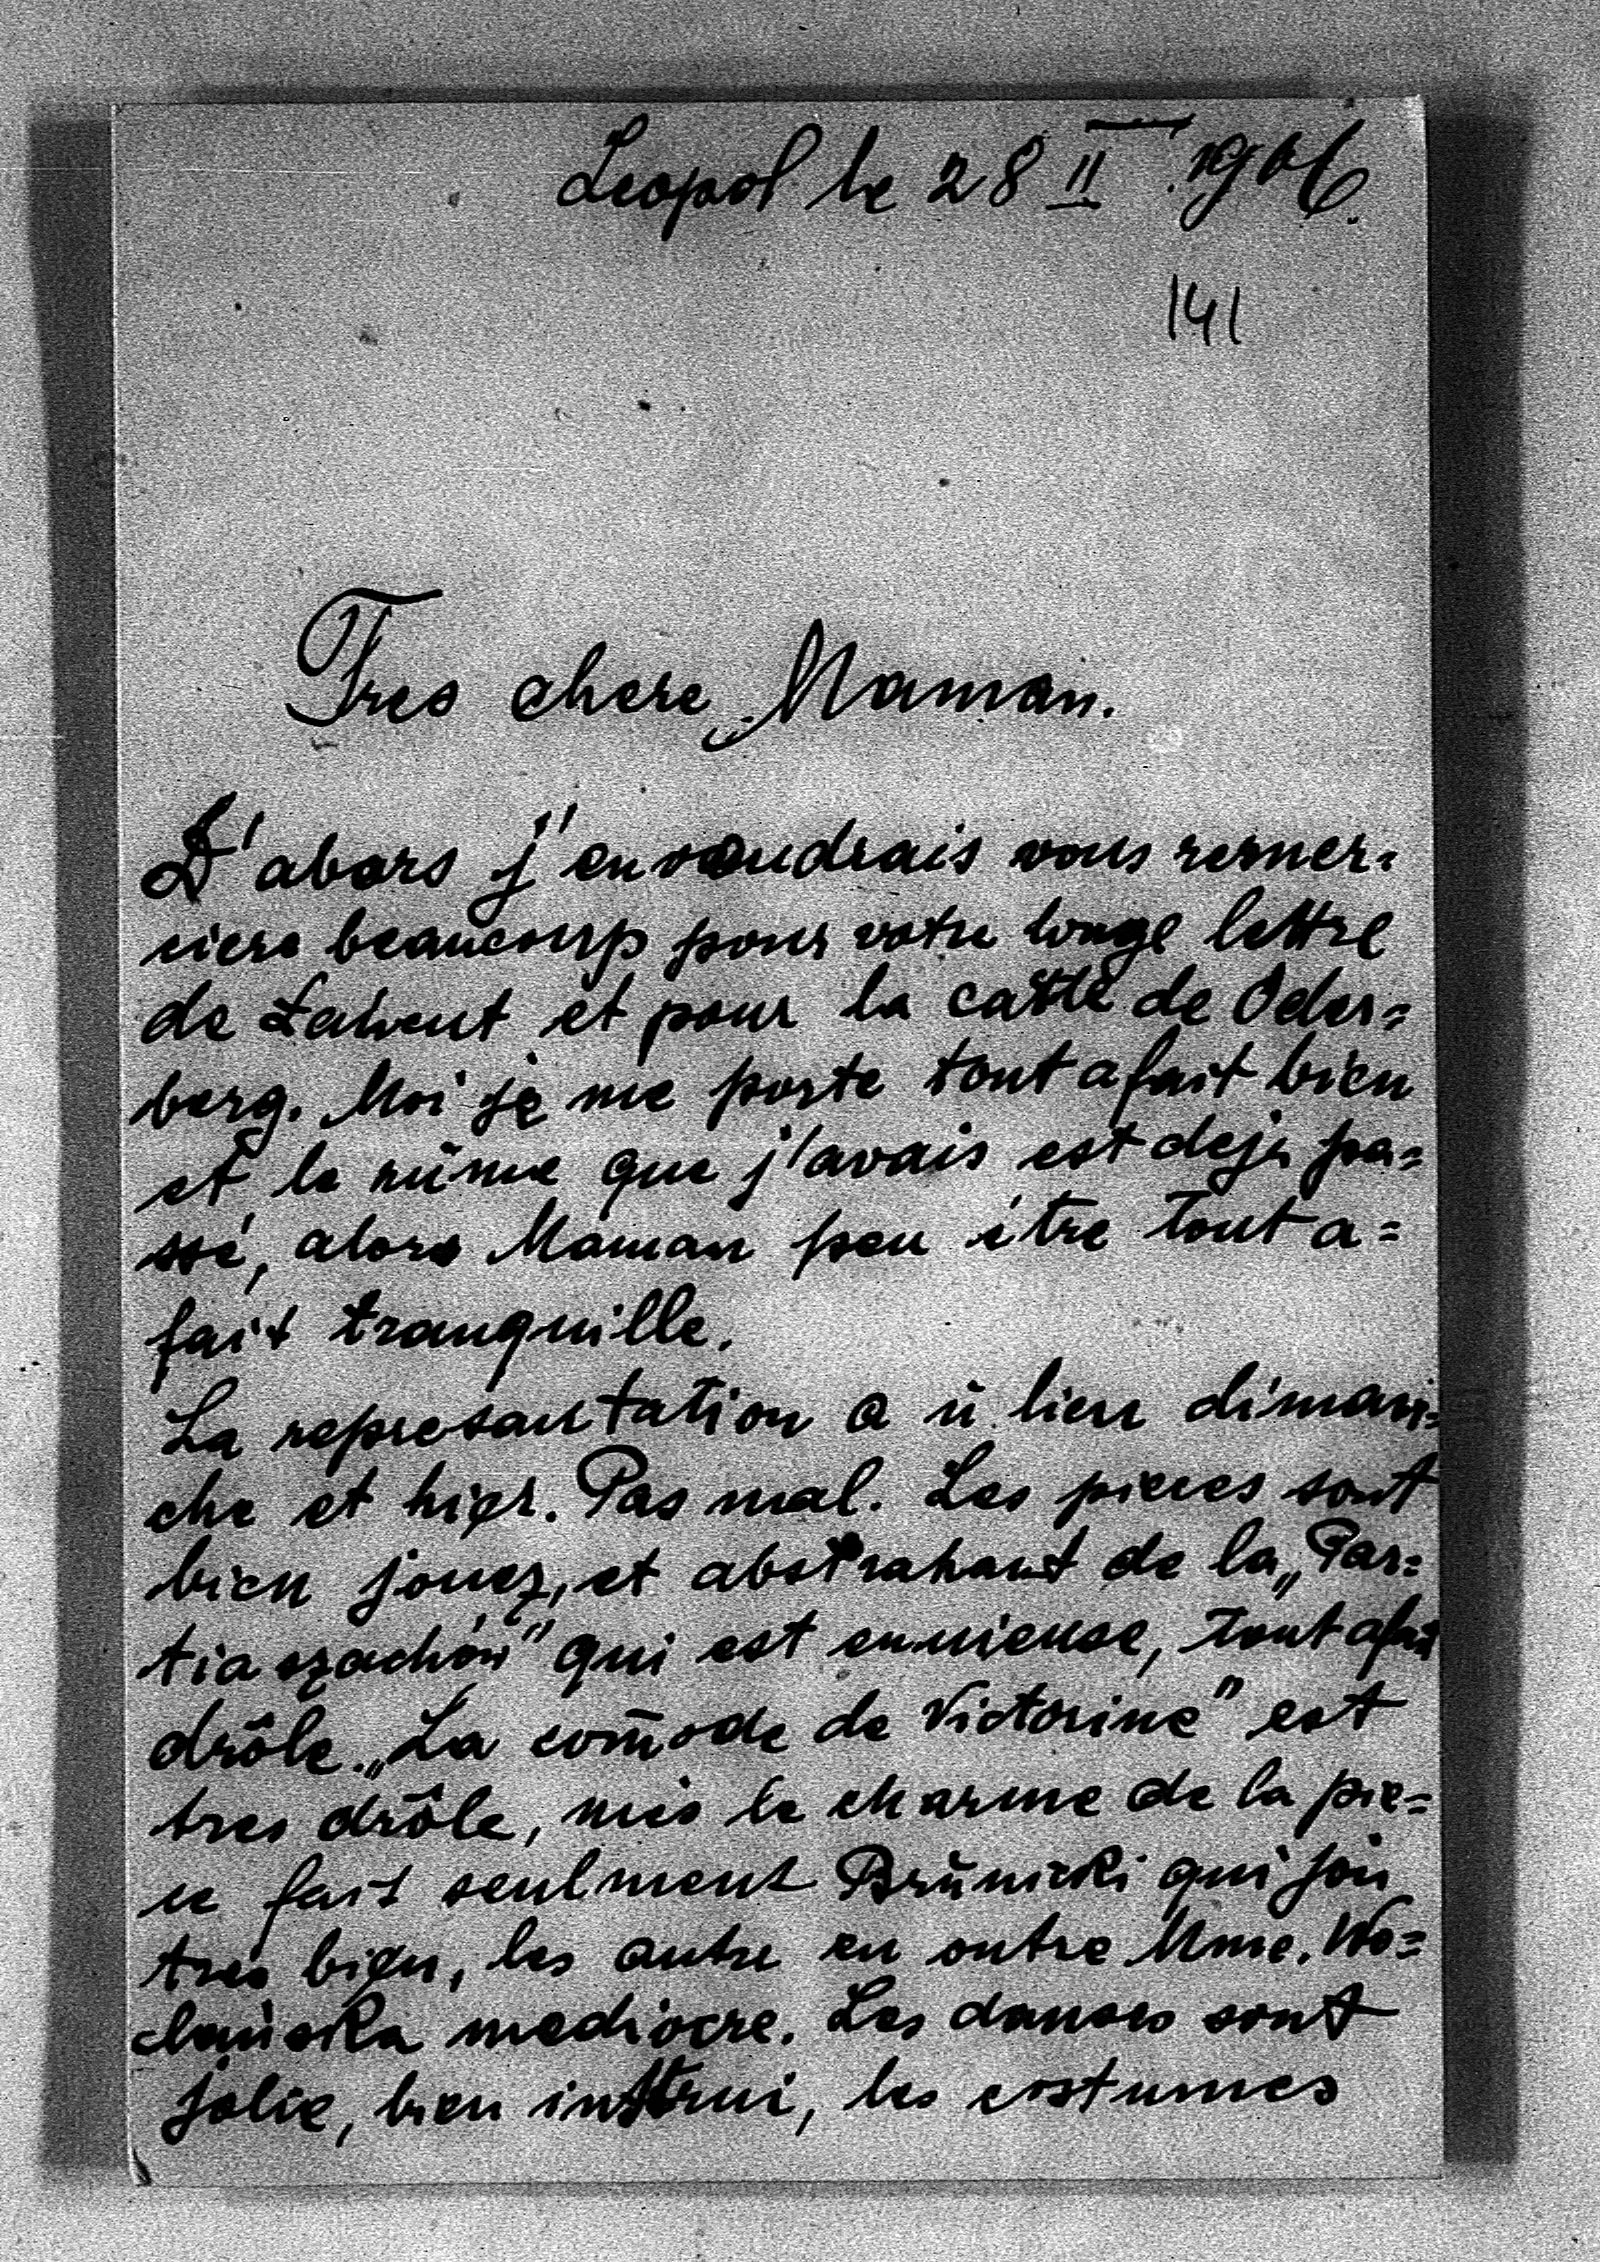 Leopol le 28 II. 1906.
141
Tres chere Maman.
D'abors j'en voudrais vous remer=
ciere beaucoup pour votre longe lettre
de Laivent et pour la carte de Oder=
berg. Moi je me porte tout a fait bien
et le rûme que j'avais est deja pa=
ssé, alors Maman peu être tout a=
fait tranquille.
La representation a ù lieu diman=
che et hier. Pas mal. Les pieces sont
bien jouez, et abstrahant de la „Par=
tia szachów" qui est ennieuse, tout a fai
drôle. „La com̄ode de Victorine" est
tres drôle, mes le charme de la pie=
ce fait seulment Brŭnicki qui jou
tres bien, les autre en outre Mme. Wo=
clańska mediocre. Les danses sont
jolie, bien instrui, les costumes